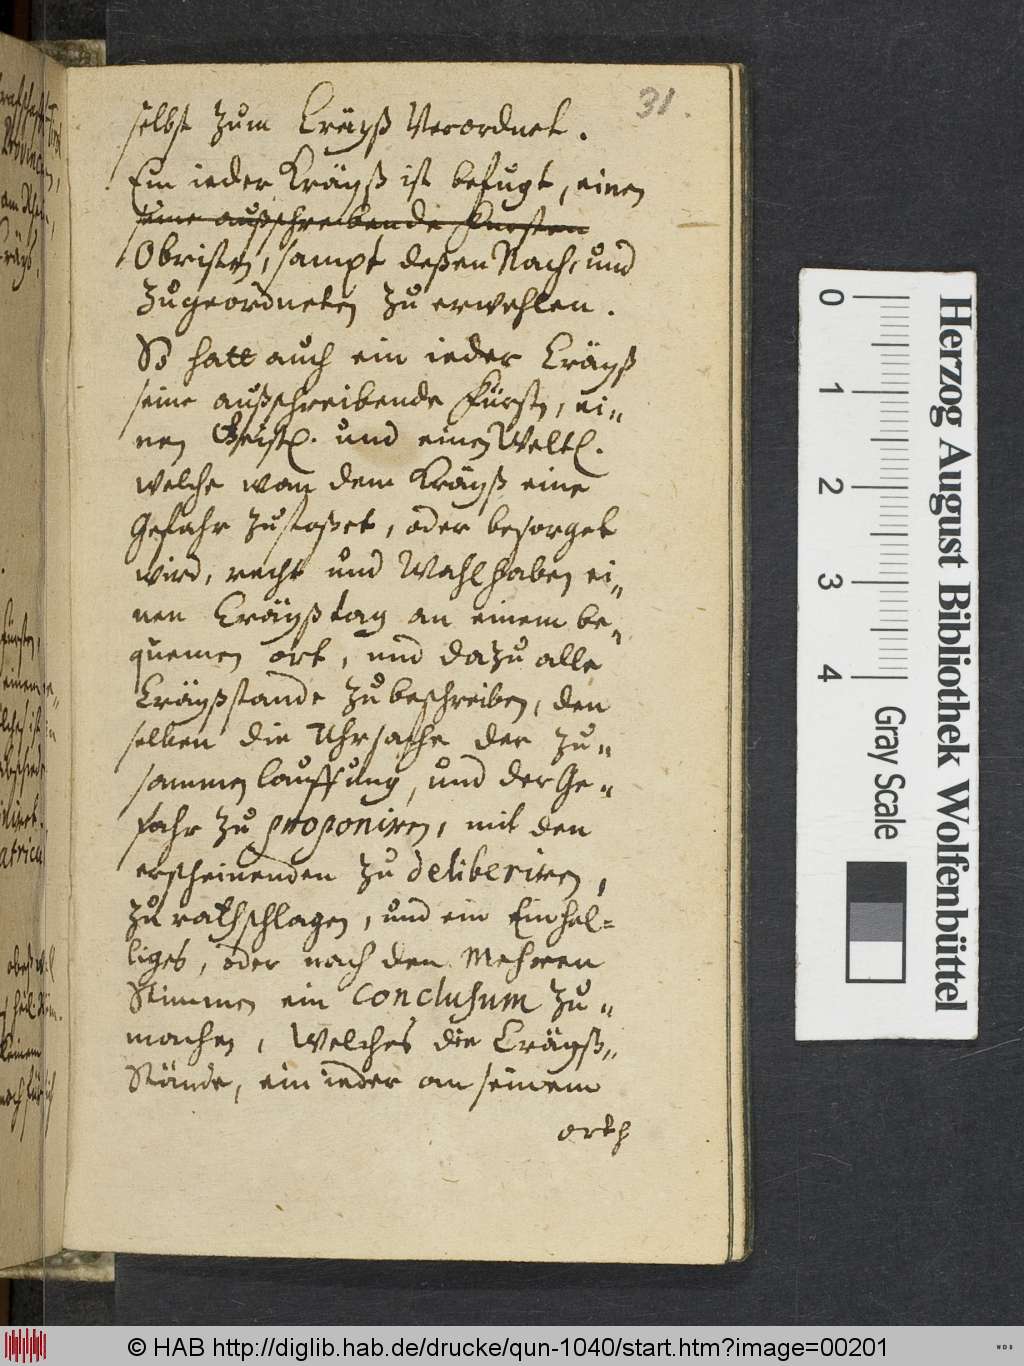 31.
selbst zum Cräyß Verordnet.
Ein ieder Kräyß ist befugt, einen
seine außschreibende Fursten
Obristen, sampt deßen Nach- und
Zugeordneten zu erwehlen.
So hatt auch ein ieder Cräyß
seine außschreibende Fürsten, ei„
nen Geistl. und einen Weltl.
welche wan dem Kräyß eine
Gefahr zustoßet, oder besorget
wird, recht und Wahl haben ei„
nen Cräyßtag an einem be„
quemen ort, und dazu alle
Cräyßstande zu beschreiben, den
selben die Uhrsache der zu„
sammen lauffung, und der Ge„
fahr zu proponiren, mit den
erscheinenden zu deliberiren,
zu rathschlagen, und ein Einhel=
liges, oder nach den Mehren
Stimmen ein Conclusum zu„
machen, Welches die Cräyß„
Stände, ein ieder an seinem
orth
0 1 2 3 4
Gray Scale
Herzog August Bibliothek Wolfenbüttel
© HAB http://diglib.hab.de/drucke/qun-1040/start.htm?image=00201